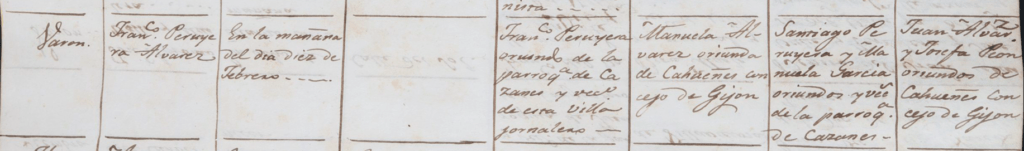 nista
Varon.
Franco. Peruye
ra Alvarez
En la mañana
del dia diez de
Febrero
Franco. Peruyera
oriundo de la
parroqa. de Ca
zanes y veco.
de esta Villa
jornalero
Manuela Al-
varez oriunda
de Cabueñes con
cejo de Gijon
Santiago Pe
ruyera y Ma
nuela Garcia
oriundos y vecs.
de la parroqa.
de Cazanes
Juan Alvarz.
y Josefa Peon
oriundos de
Cabueñes con
cejo de Gijon